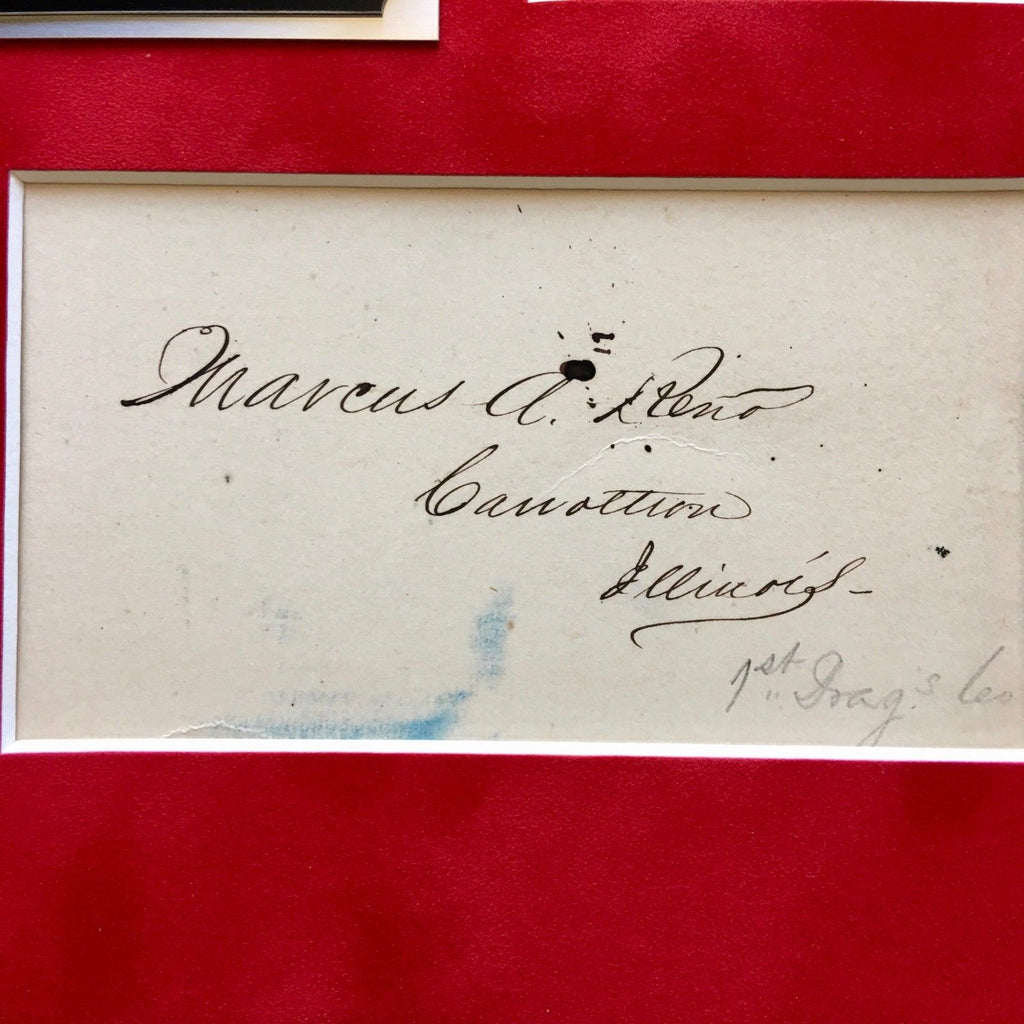 Marcus A. Reno
Carrollton
Illinois -
1st Drag's